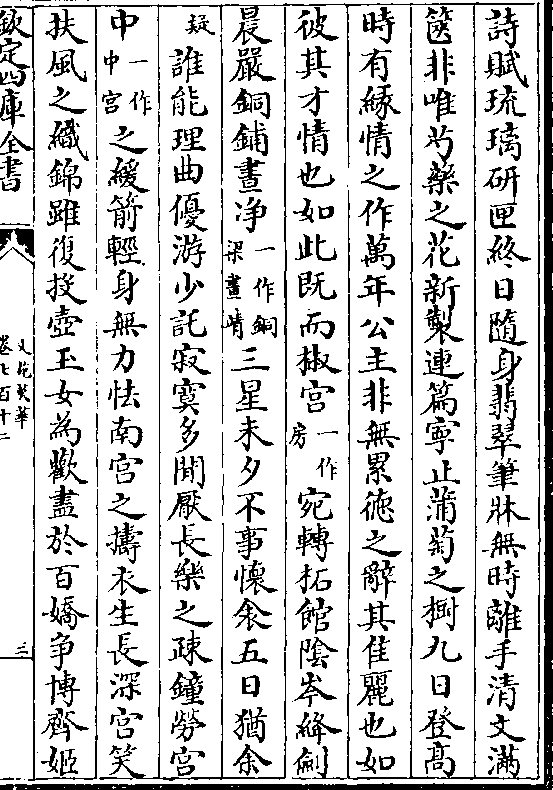 詩賦琉璃研匣終日隨身翡翠筆牀無時離手清文滿
篋非唯芍藥之花新製連篇寧止蒲萄之樹九日登髙
時有緣情之作萬年公主非無累徳之辭其佳麗也如
彼其才情也如此既而椒宫一作房宛轉拓館陰岑絳劍
晨嚴銅鋪晝净一作銅梁晝靖三星未夕不事懷衾五日猶余
疑誰能理曲優游少託寂寞多閒厭長樂之疎鐘勞宫
中一作中宫之緩箭輕身無力怯南宫之擣衣生長深宫笑
扶風之織錦雖復投壺玉女為歡盡於百嬌争博齊姬
欽定四庫全書
文苑英華
卷七百十二
三